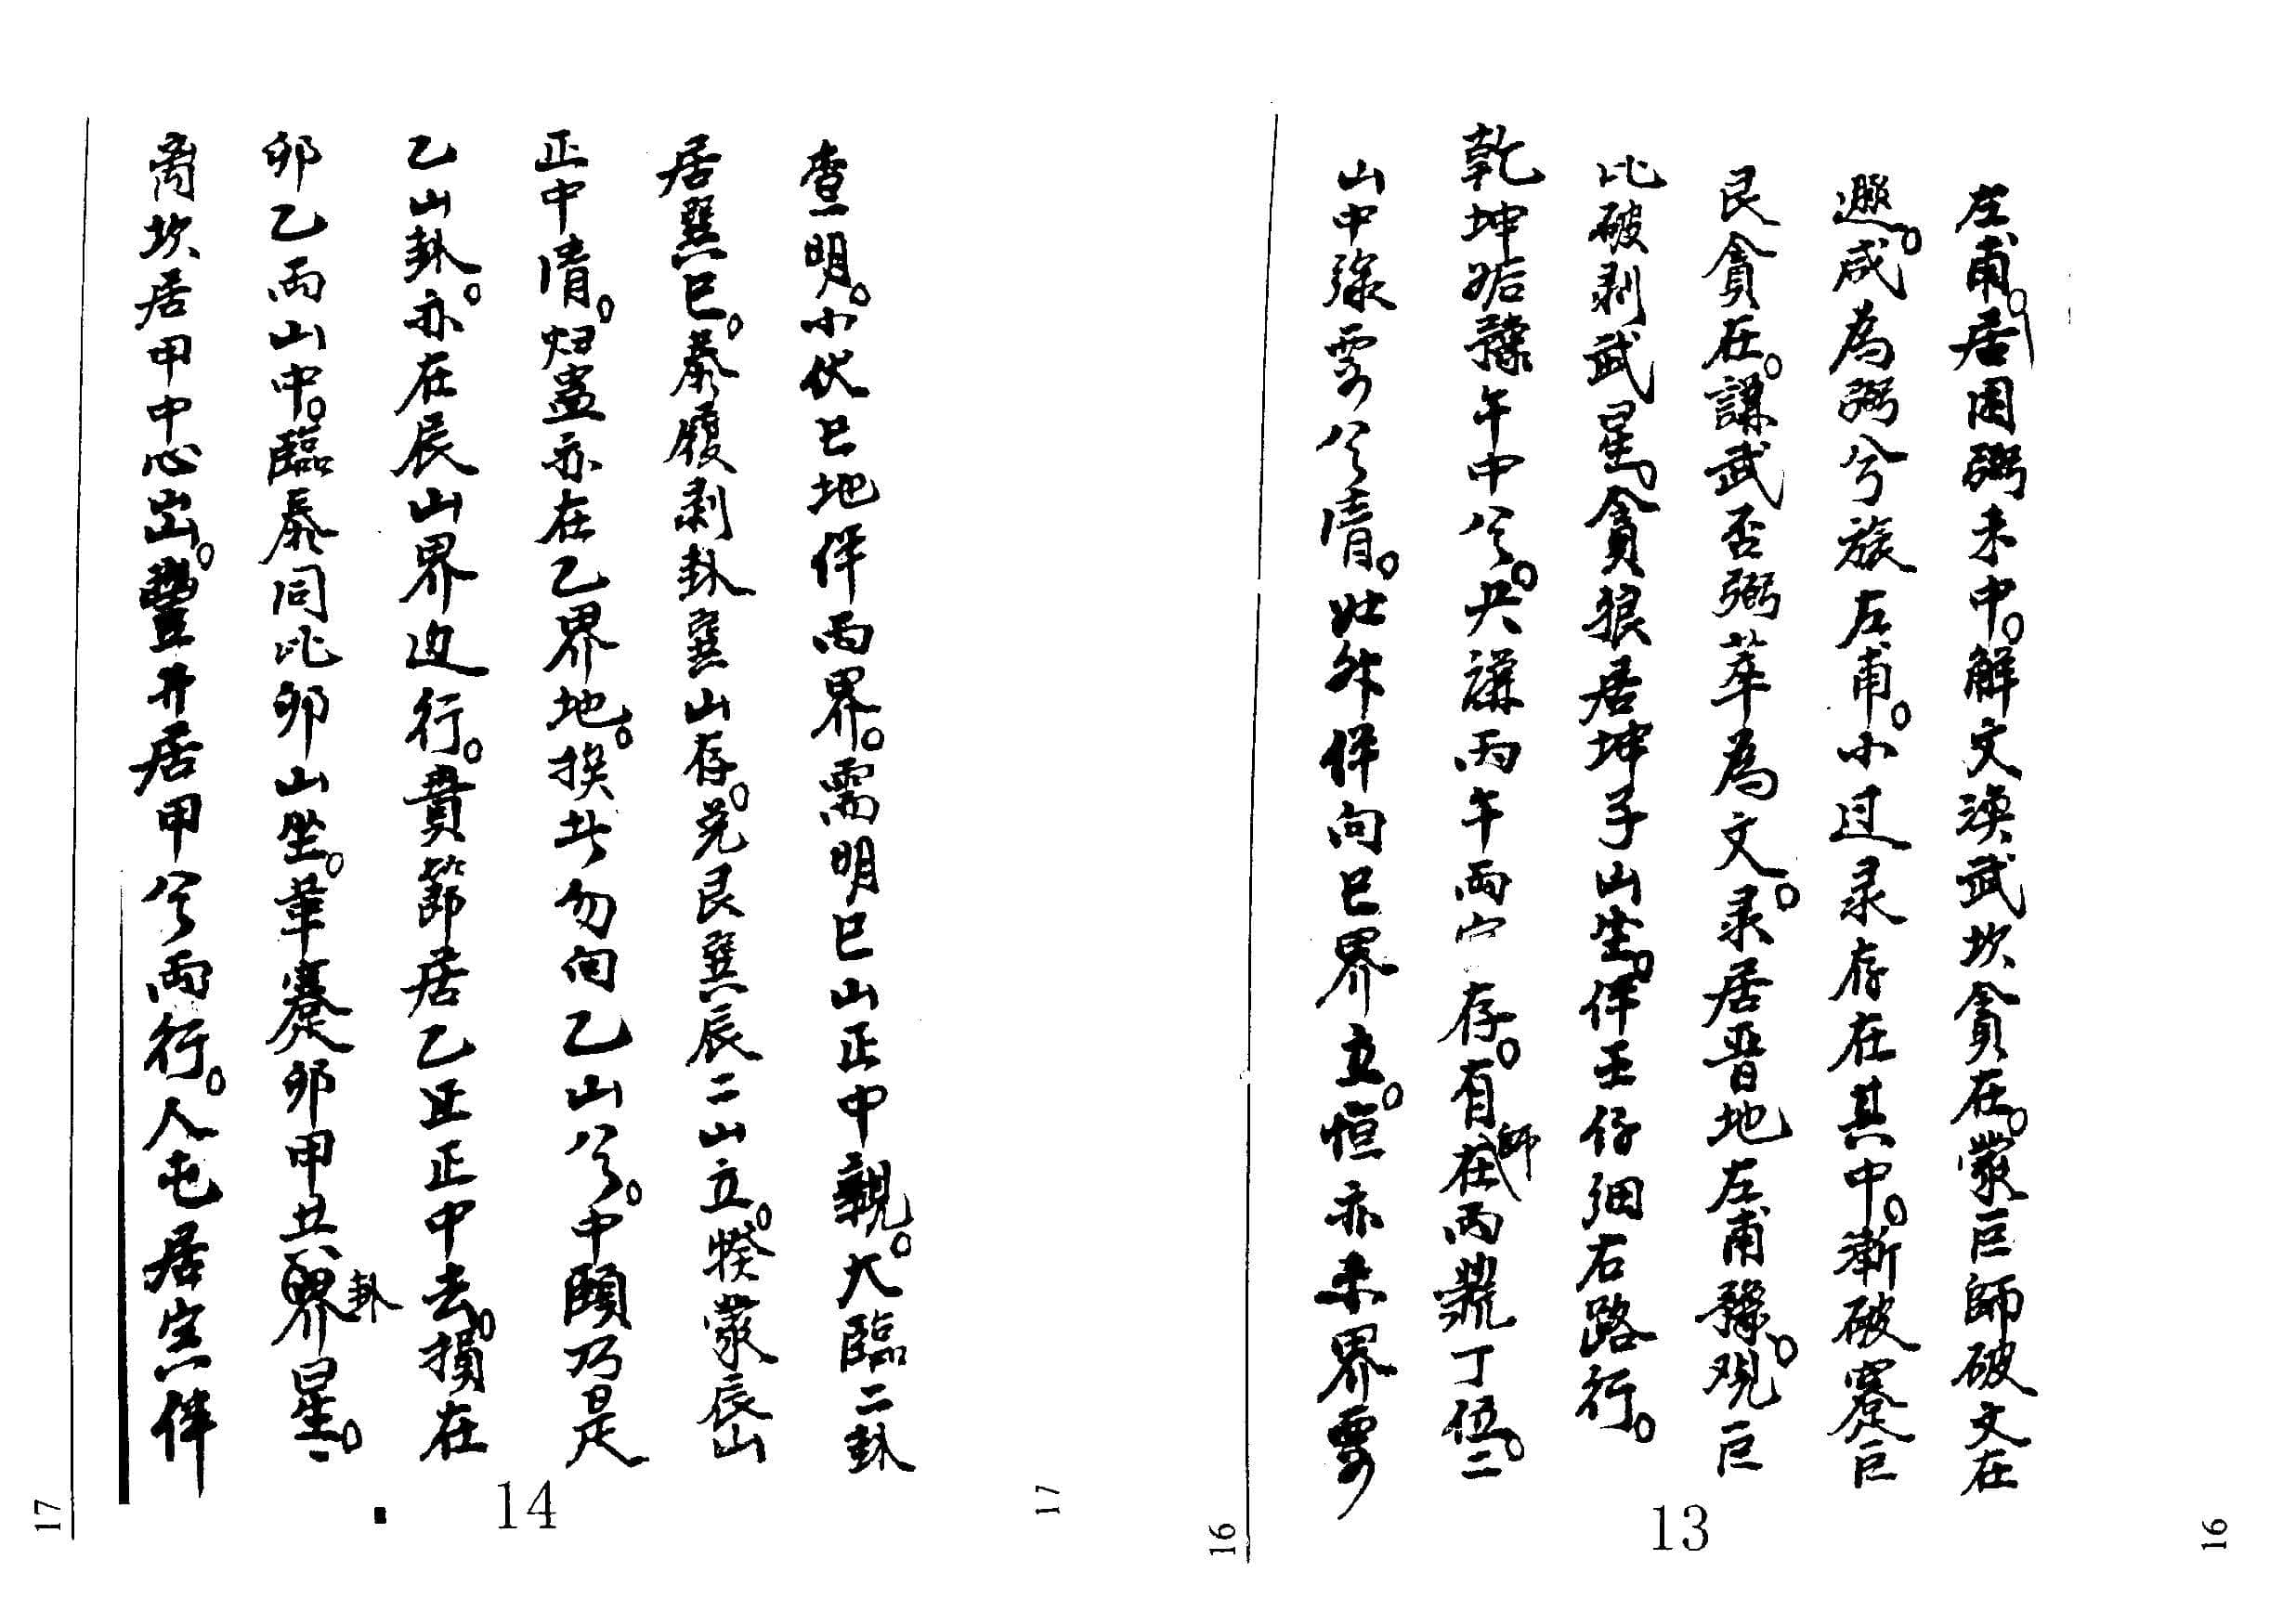 左甫。居困弼未中。解文渙武坎貪在。蒙巨師破文在
遯。咸為弼兮旅左甫。小过录存在其中。漸破蹇巨
艮貪在。謙武否弼萃為文。录居晋地左甫豫。观巨
比破剥武星。貪狼居坤子山坐。伴壬仔细右路行。
乾坤姤豫午中兮。共謙丙午两存。有師在丙鼎丁伍。二
山中缘要兮清。壮外伴向巳界立。恒亦来界要
16
13
16
查明。小伏巳地伴两界。需明巳山正中親。大臨二卦
居巽巳。泰履剥卦巽山存。兑艮巽辰二山立。睽蒙辰山
正中清。归蛊亦在乙界地。换此勿向乙山兮。中頤乃是
乙山卦。亦在辰山界边行。賁節居乙正正中去。損在
卯乙两山中。臨泰同比卯山坐。革蹇卯甲共界卦星。二
离坎居甲中心出。豐井居甲兮两行。人屯居寅伴
17
14
17